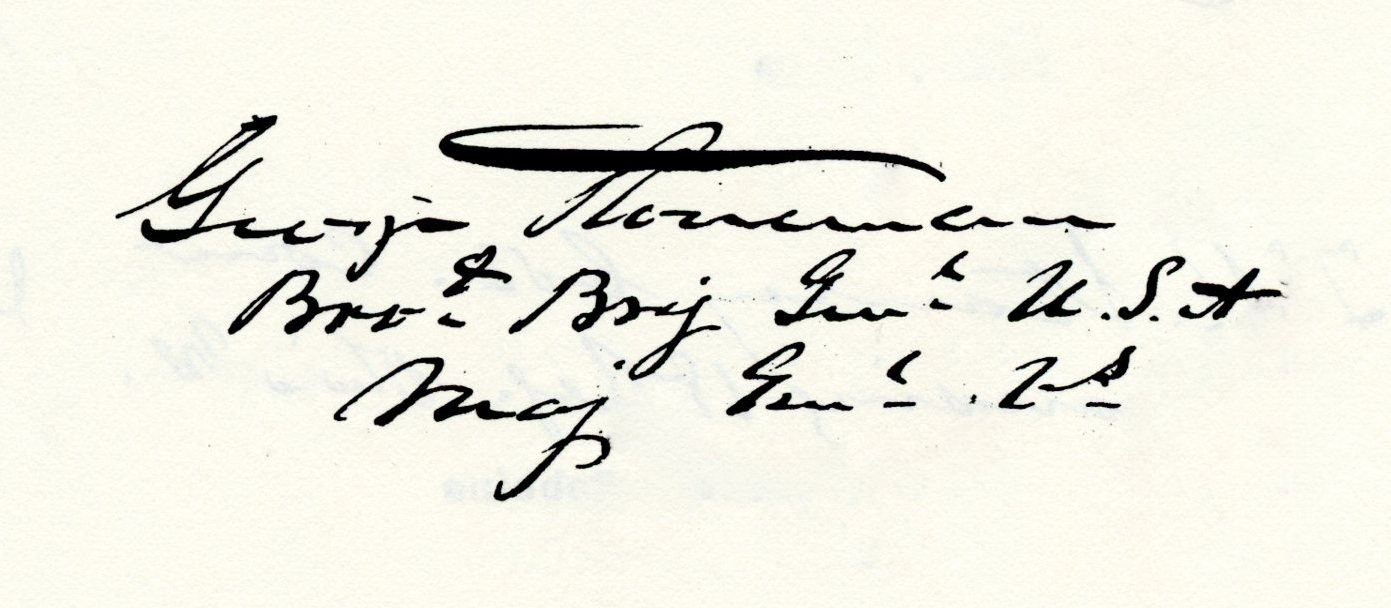 George Stoneman
Brevt Brig Genl U.S.A
Maj Genl Vs